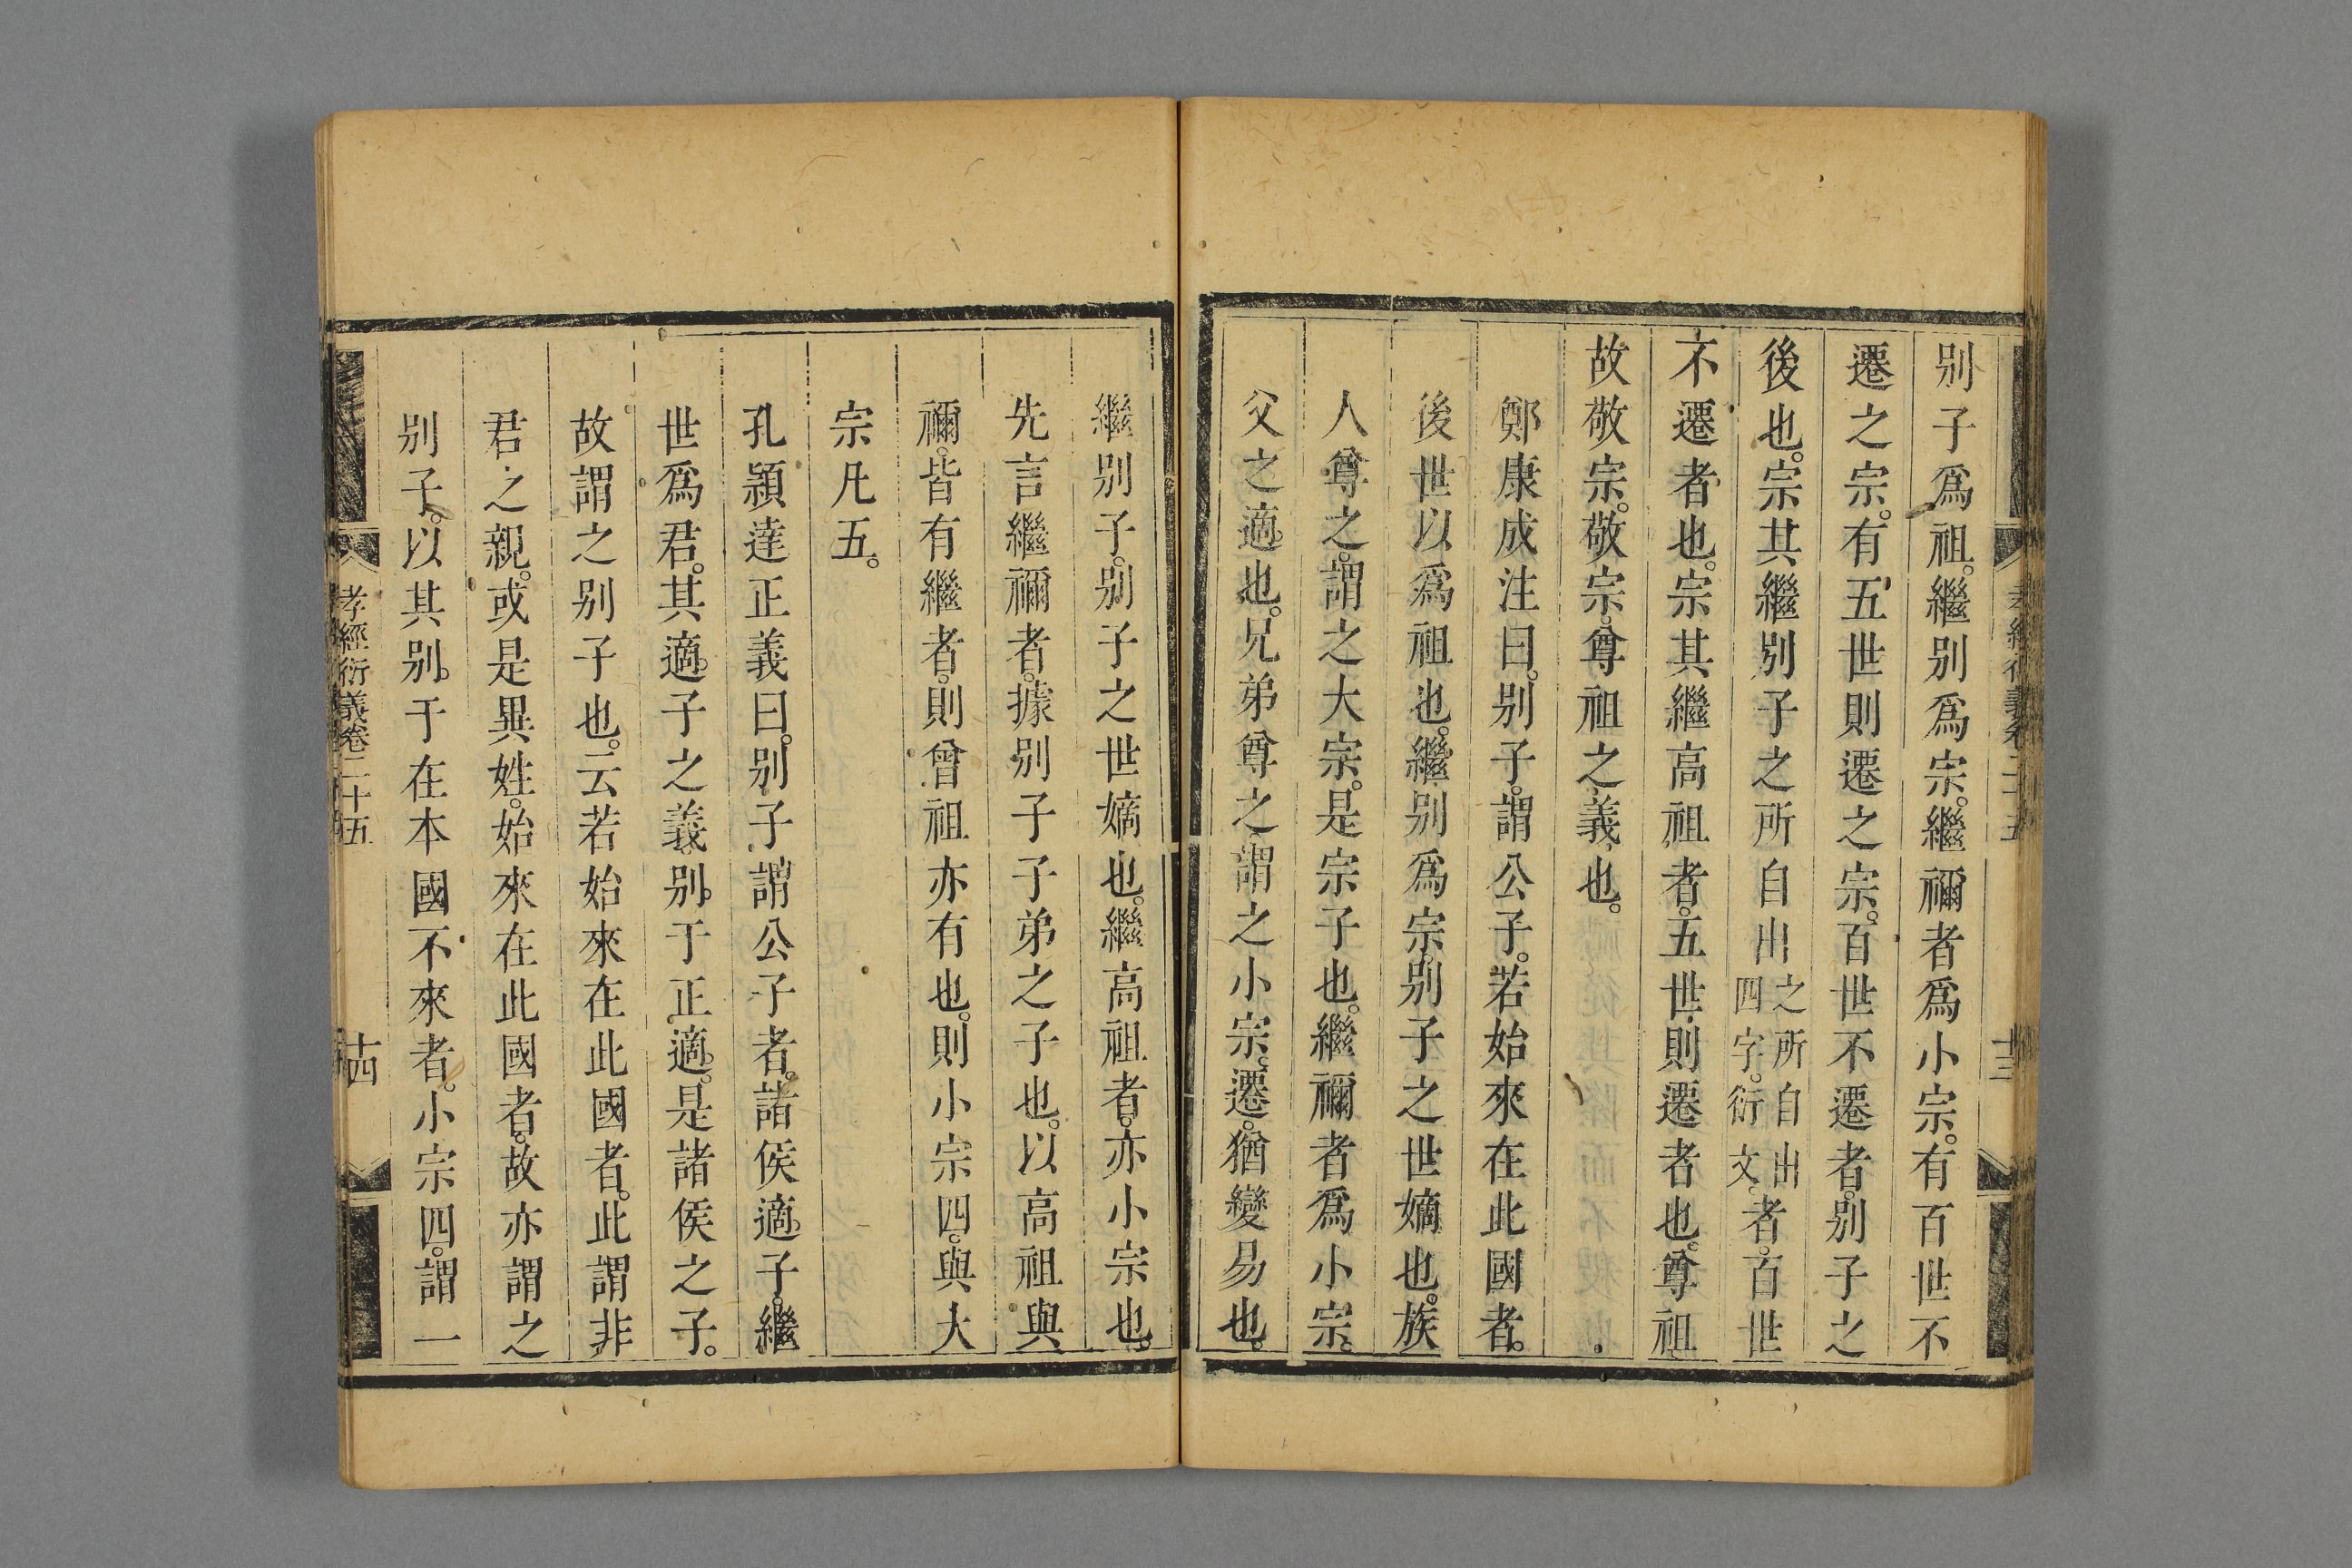 別子爲祖。繼别爲宗。繼禰者爲小宗。有百世不
遷之宗。有五世則遷之宗。百世不遷者。别子之
後也。宗其繼别子之所自出之所自出四字。衍文。者。百世
不遷者也。宗其繼高祖者。五世則遷者也。尊祖
故敬宗。敬宗。尊祖之義也。
鄭康成注曰。别子。謂公子。若始來在此國者。
後世以爲祖也。繼别爲宗。别子之世嫡也。族
人尊之。謂之大宗。是宗子也。繼禰者爲小宗。
父之適也。兄弟尊之。謂之小宗。遷。猶變易也。
繼别子。别子之世嫡也。繼高祖者。亦小宗也。
先言繼禰者。據别子子弟之子也。以高祖與
禰。皆有繼者。則曾祖亦有也。則小宗四。與大
宗凡五。
孔頴達正義曰。别子謂公子者。諸侯適子。繼
世爲君。其適子之義。别于正適。是諸侯之子。
故謂之别子也。云若始來在此國者。此謂非
君之親。或是異姓。始來在此國者。故亦謂之
别子。以其别于在本國不來者。小宗四。謂一
孝經衍義卷二十五
十四